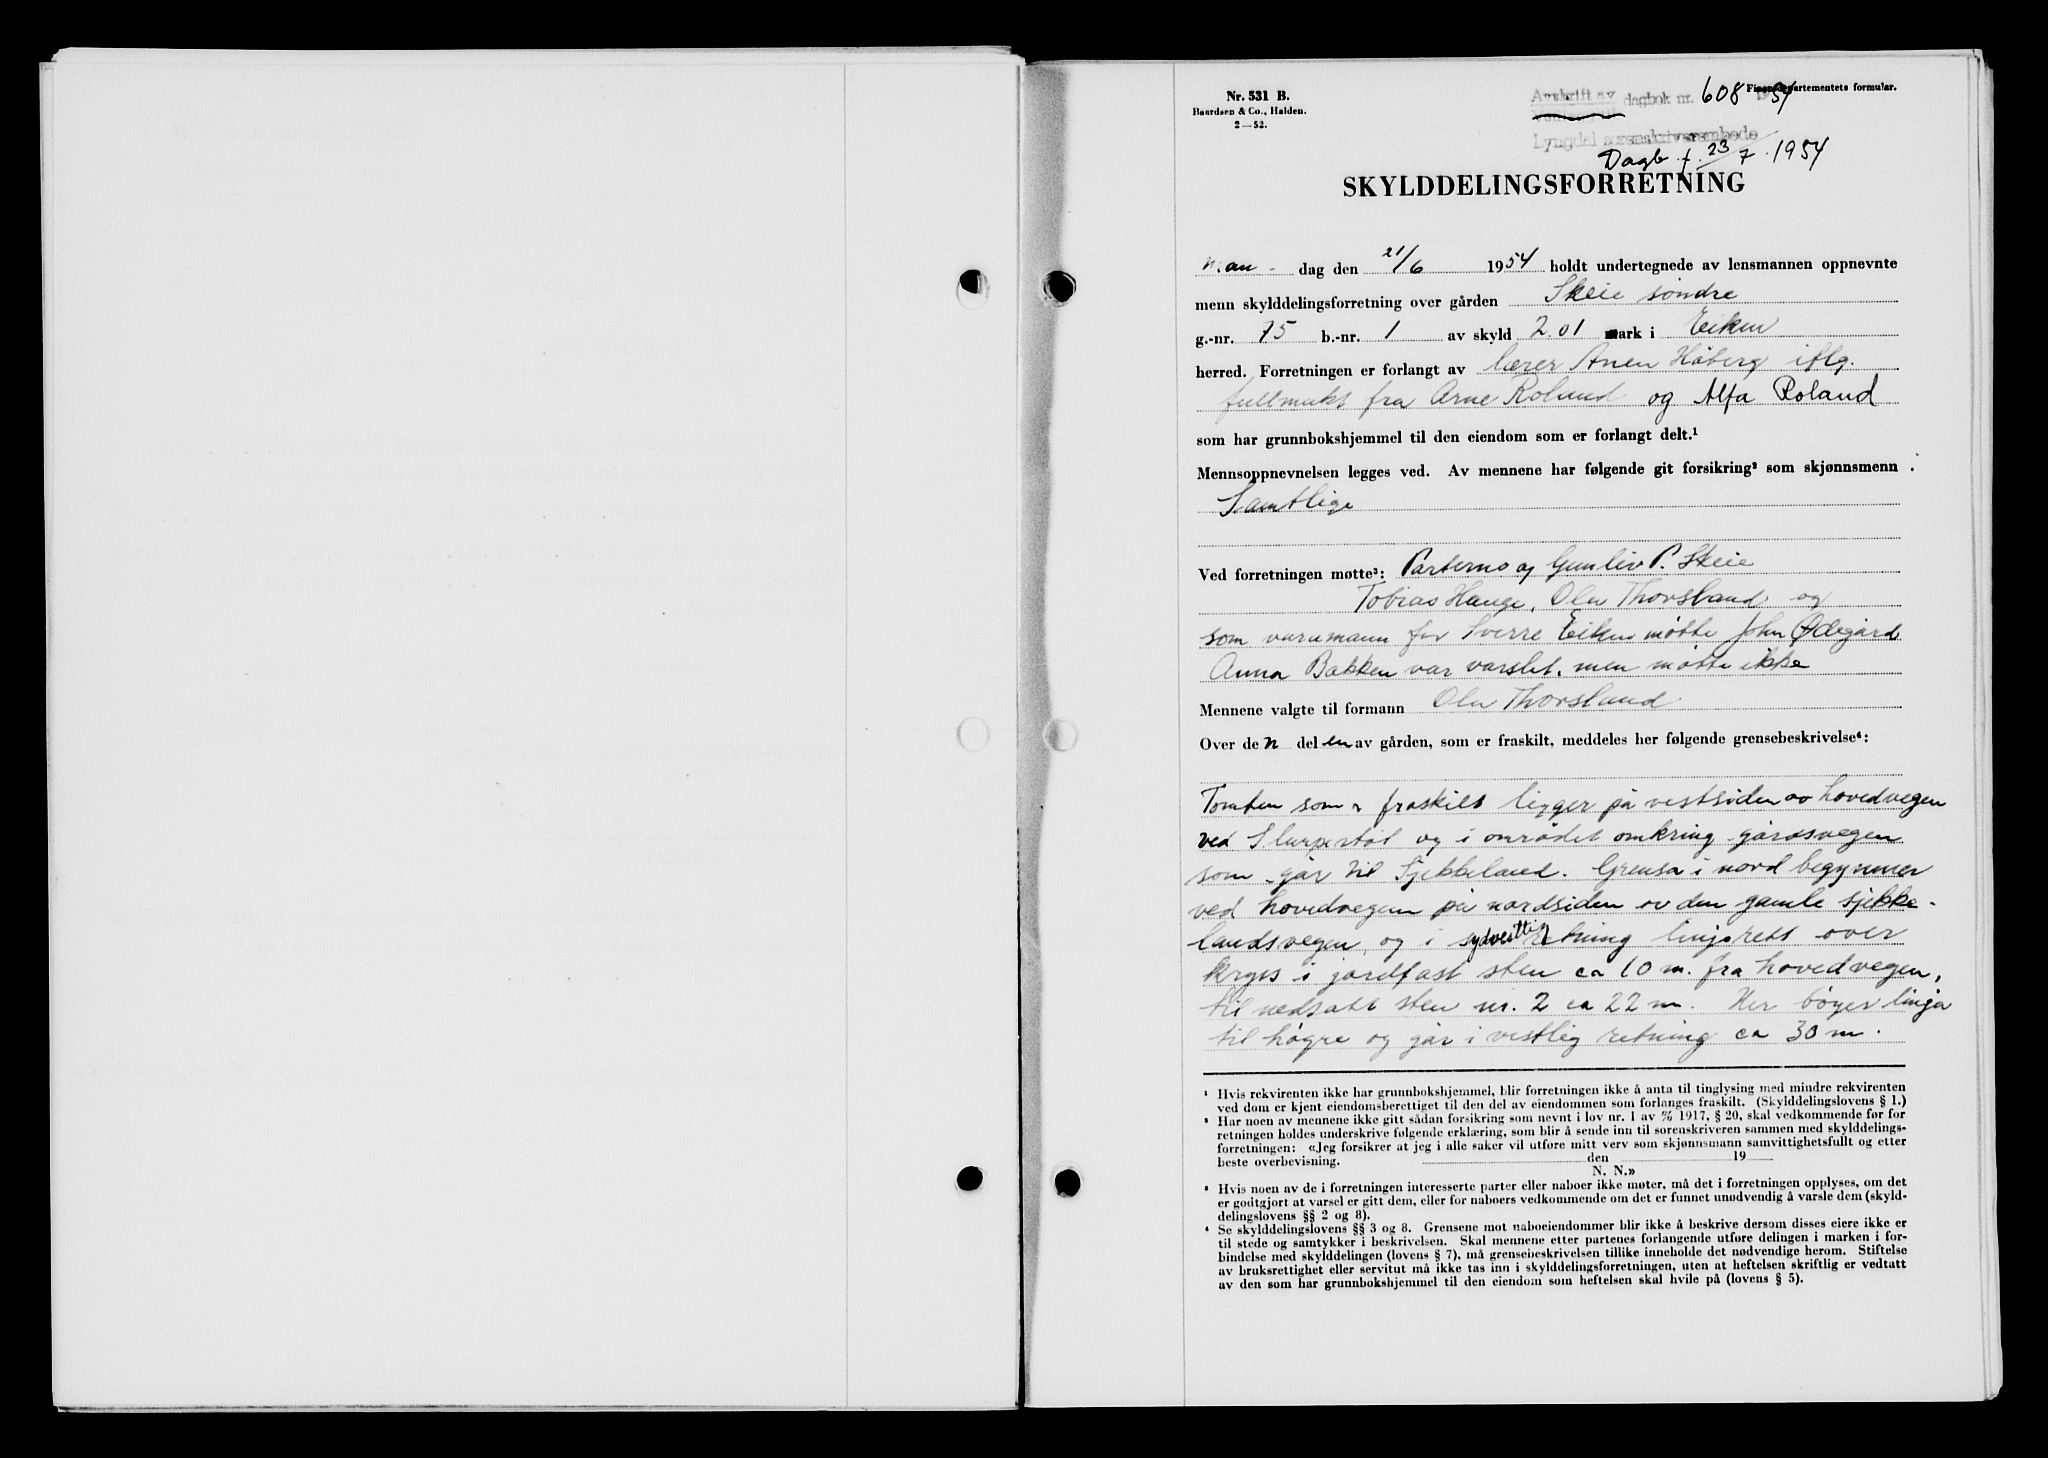 Nr. 531 B.
Baardsen & Co., Halden.
2—52.
Avskrift av dagbok nr. 608 1954
Finansdepartementets formular.
Lyngdal sorenskriverembede
Dagb. f. 23/7 1954
SKYLDDELINGSFORRETNING
Man- dag den 21/6 1954 holdt undertegnede av lensmannen oppnevnte
menn skylddelingsforretning over gården Skeie søndre
g.-nr. 75 b.-nr. 1 av skyld 2.01 mark i Eiken
herred. Forretningen er forlangt av lærer Anen Håberg iflg.
fullmakt fra Arne Roland og Alfa Roland
som har grunnbokshjemmel til den eiendom som er forlangt delt.¹
Mennsoppnevnelsen legges ved. Av mennene har følgende git forsikring² som skjønnsmenn .
Samtlige
Ved forretningen møtte³: Parterne og Gunliv P. Skeie
Tobias Hauge, Ola Thorsland og
som varamann for Sverre Eiken møtte John Ødegård
Anna Bakken var varslet, men møtte ikke
Mennene valgte til formann Ola Thorsland
Over den delen av gården, som er fraskilt, meddeles her følgende grensebeskrivelse⁴:
Tomten som er fraskilt ligger på vestsiden av hovedvegen
ved og i området omkring gårdsvegen
som går til Sjekkeland. Grensa i nord begynner
ved hovedvegen på nordsiden av den gamle sjekke-
landsvegen, og i sydvestlig retning linjerett over
kryss i jordfast sten ca 10 m. fra hovedvegen,
til nedsatt sten nr. 2 ca 22 m. Her bøyer linja
til høgre og går i vestlig retning ca 30 m.
¹ Hvis rekvirenten ikke har grunnbokshjemmel, blir forretningen ikke å anta til tinglysing med mindre rekvirenten
ved dom er kjent eiendomsberettiget til den del av eiendommen som forlanges fraskilt. (Skylddelingslovens § 1.)
² Har noen av mennene ikke gitt sådan forsikring som nevnt i lov nr. 1 av 1917, § 20, skal vedkommende før for
retningen holdes underskrive følgende erklæring, som blir å sende inn til sorenskriveren sammen med skylddelings-
forretningen: «Jeg forsikrer at jeg i alle saker vil utføre mitt verv som skjønnsmann samvittighetsfullt og etter
beste overbevisning. den 19
N. N.»
³ Hvis noen av de i forretningen interesserte parter eller naboer ikke møter, må det i forretningen opplyses, om det
er godtgjort at varsel er gitt dem, eller for naboers vedkommende om det er funnet unødvendig å varsle dem (skyld-
delingslovens §§ 2 og 8).
⁴ Se skylddelingslovens §§ 3 og 8. Grensene mot naboeiendommer blir ikke å beskrive dersom disses eiere ikke er
til stede og samtykker i beskrivelsen. Skal mennene etter partenes forlangende utføre delingen i marken i for-
bindelse med skylddelingen (lovens § 7), må grensebeskrivelsen tillike inneholde det nødvendige herom. Stiftelse
av bruksrettighet eller servitut må ikke tas inn i skylddelingsforretningen, uten at heftelsen skriftlig er vedtatt
av den som har grunnbokshjemmel til den eiendom som heftelsen skal hvile på (lovens § 5).